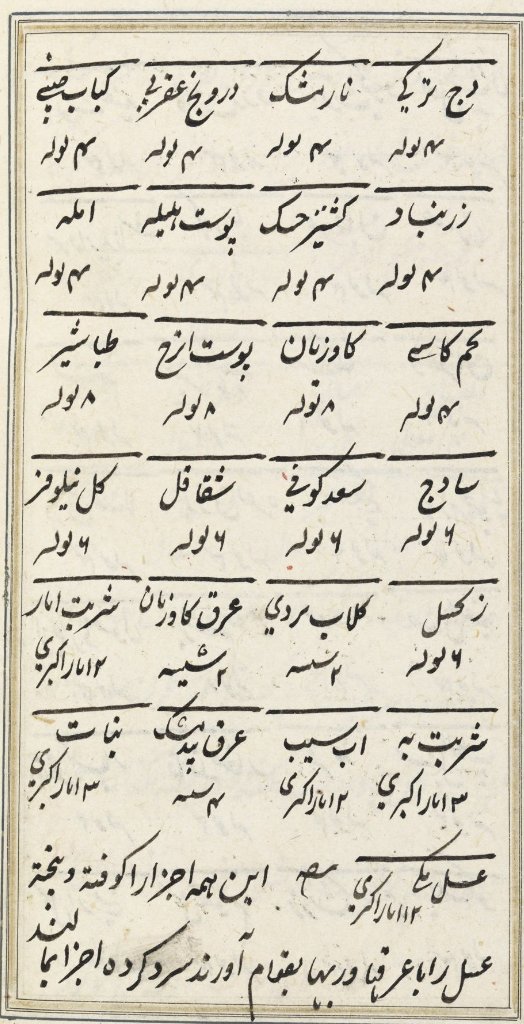 وج ترکی نارمشک درونج عقربی کباب چینی
۴ توله ۴ توله ۴ توله ۴ توله
زرنباد کشنیز خشک پوست هلیله امله
۴ توله ۴ توله ۴ توله ۴ توله
تخم کاسنی کاوزبان پوست اترج طباشیر
۴ توله ۸ توله ۸ توله ۸ توله
سادج سعد کوفی شقاقل کل نیلوفر
۶ توله ۶ توله ۶ توله ۶ توله
زنجبیل کلاب یزدی عرق کاوزبان شربت انار
۶ توله ۲ شیشه ۲ شیشه ۲ اثار اکبری
شربت به اب سیب عرق بیدمشک نبات
۳ اثار اکبری ۲ اثار اکبری ۴ شیشه ۳ اثار اکبری
عسل مکی این همه اجزا را کوفته و بیخته
۱۲ اثار اکبری
عسل را با عرقها و ربها بقوام آورند سرد کرده اجزا بمالند